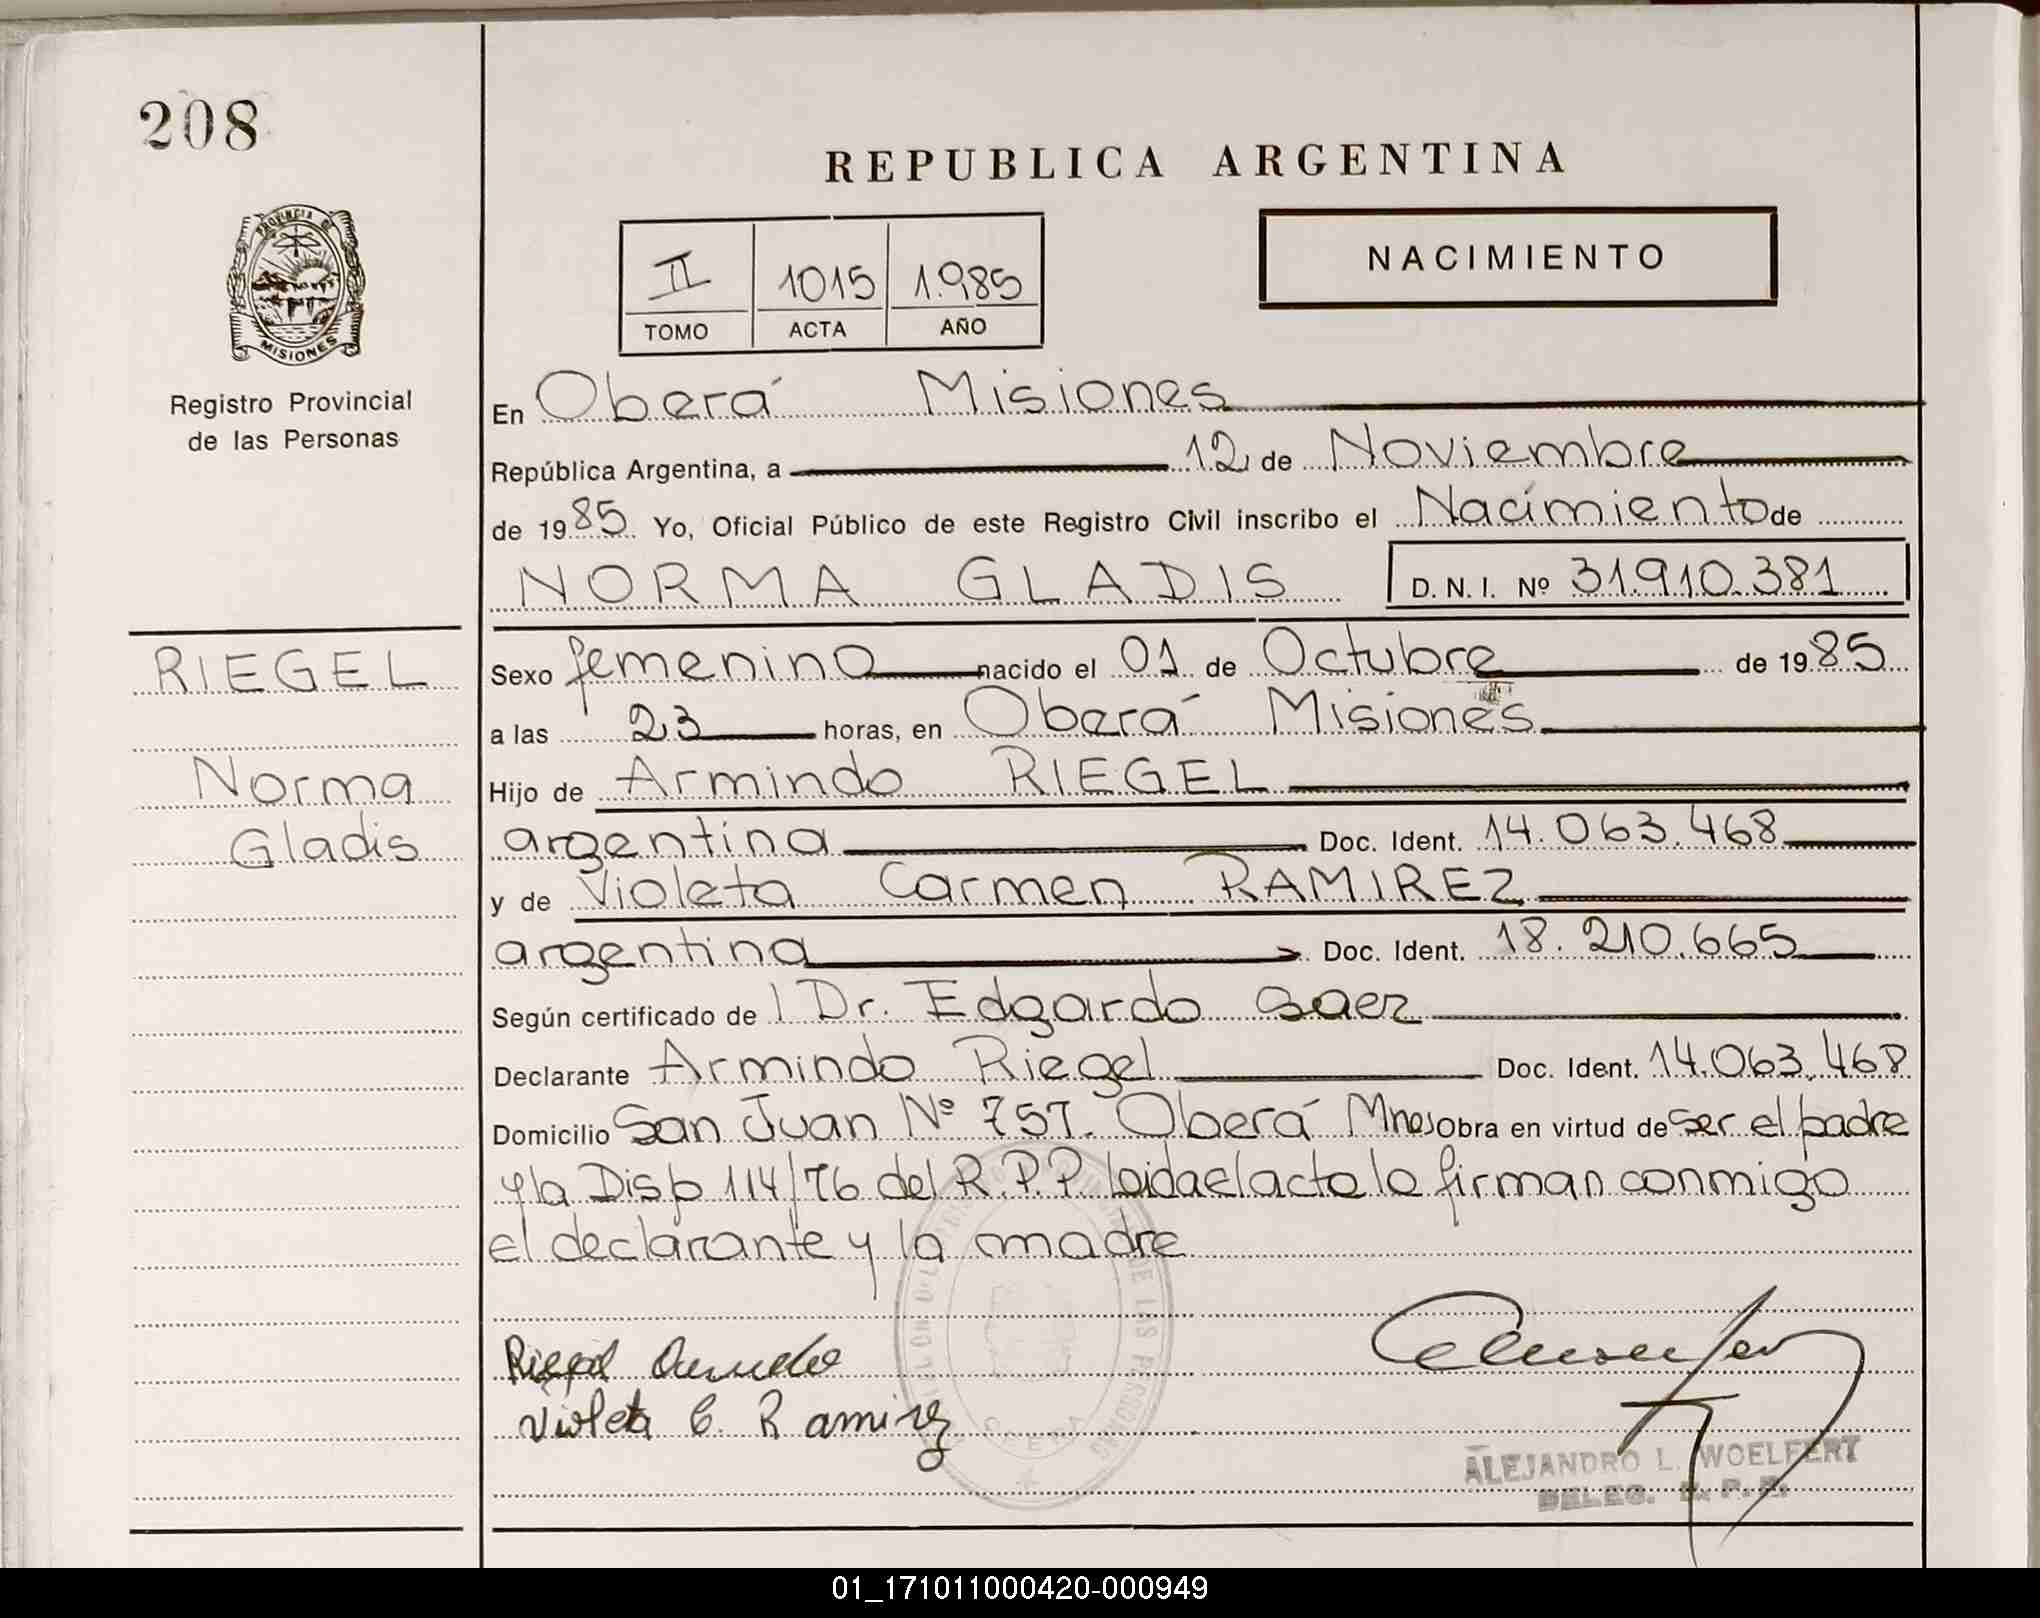 208
REPUBLICA ARGENTINA
PROVINCIA DE
MISIONES
II 1015 1.985
TOMO ACTA AÑO
NACIMIENTO
Registro Provincial
de las Personas
En Oberá Misiones
República Argentina, a 12 de Noviembre
de 1985 Yo, Oficial Público de este Registro Civil inscribo el Nacimiento de
NORMA GLADIS D.N.I. Nº 31.910.381
RIEGEL
Norma
Gladis
Sexo femenino nacido el 01 de Octubre de 1985
a las 23 horas, en Oberá Misiones
Hijo de Armindo RIEGEL
argentina Doc. Ident. 14.063.468
y de Violeta Carmen RAMIREZ
argentina Doc. Ident. 18.210.665
Según certificado de l Dr. Edgardo Saez
Declarante Armindo Riegel Doc. Ident. 14.063.468
Domicilio San Juan Nº 757. Oberá Mnes obra en virtud de ser el padre
y la Disp 114/76 del R.P.P. leida el acta la firman conmigo
el declarante y la madre
Riegel Armindo
Violeta C. Ramirez
OBERA
ALEJANDRO L. WOELFERT
DELEG. R. P. P.
01_171011000420-000949